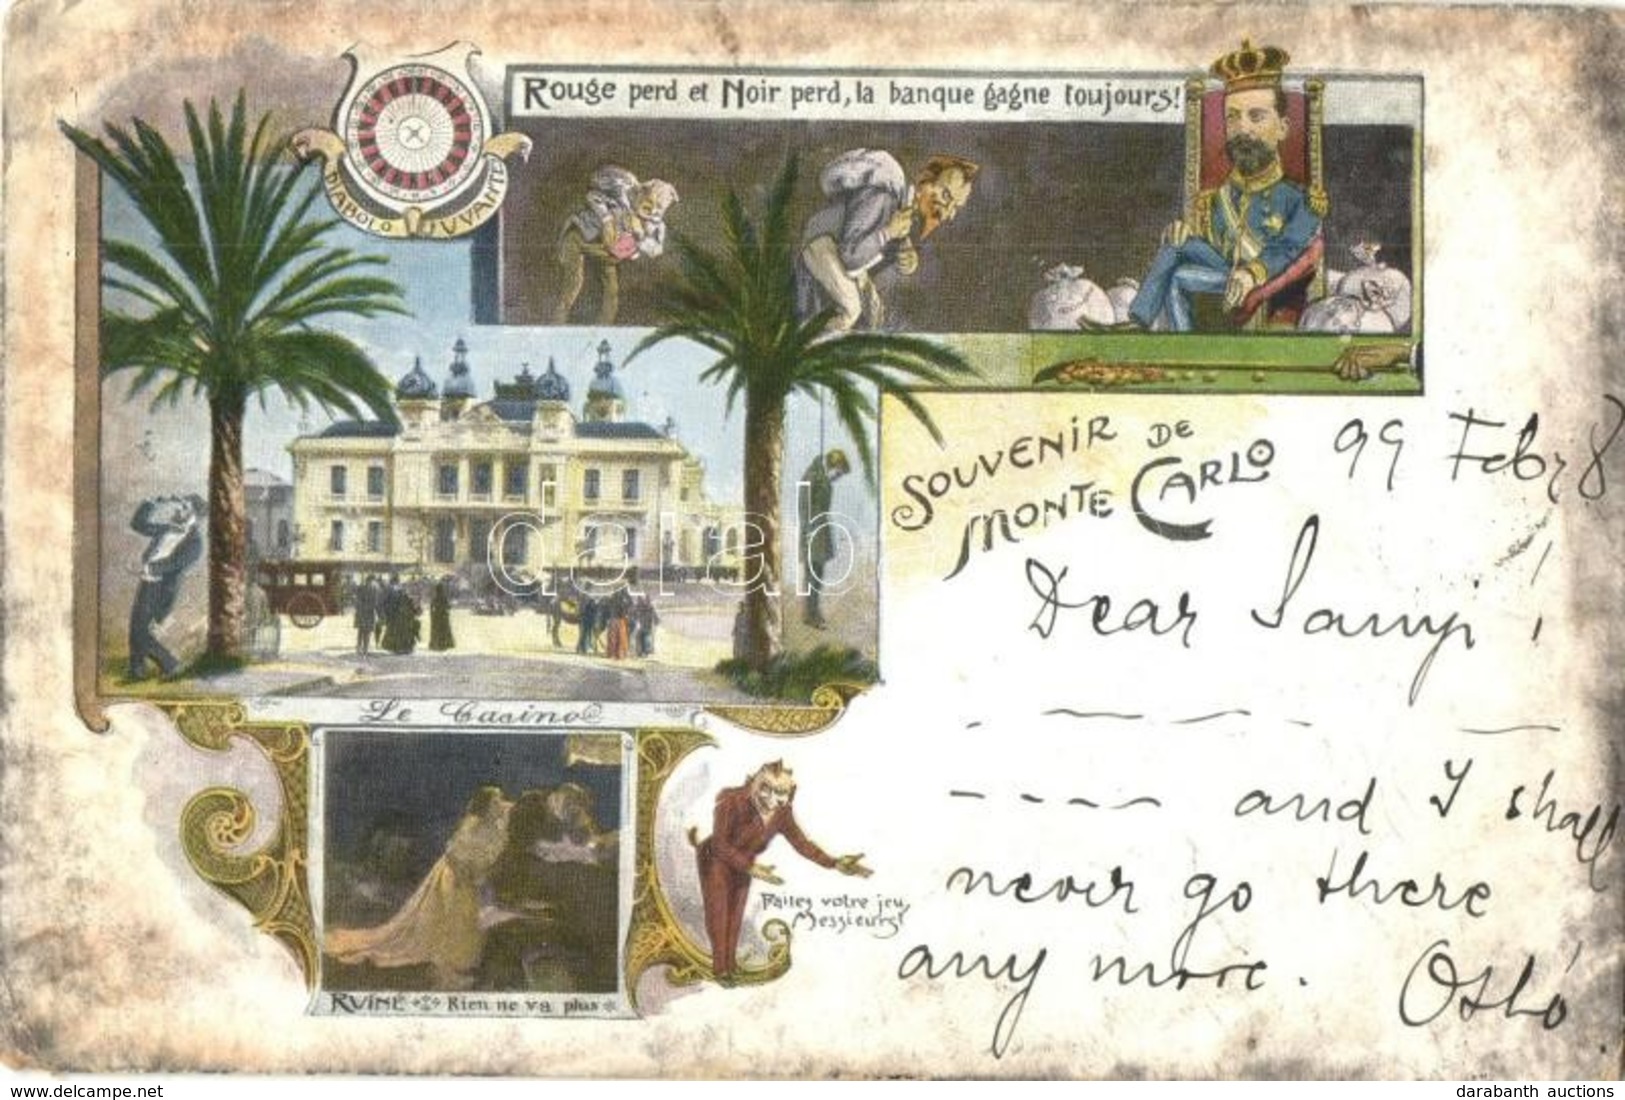 Rouge perd et Noir perd, la banque gagne toujours!
DIABOLO JUVANTE
SOUVENIR DE
MONTE CARLO
99 Febr 8
Dear
and I shall
never go there
any more.
Le Casino
Faites votre jeu,
Messieurs!
RUINE Rien ne va plus
darabanth auctions